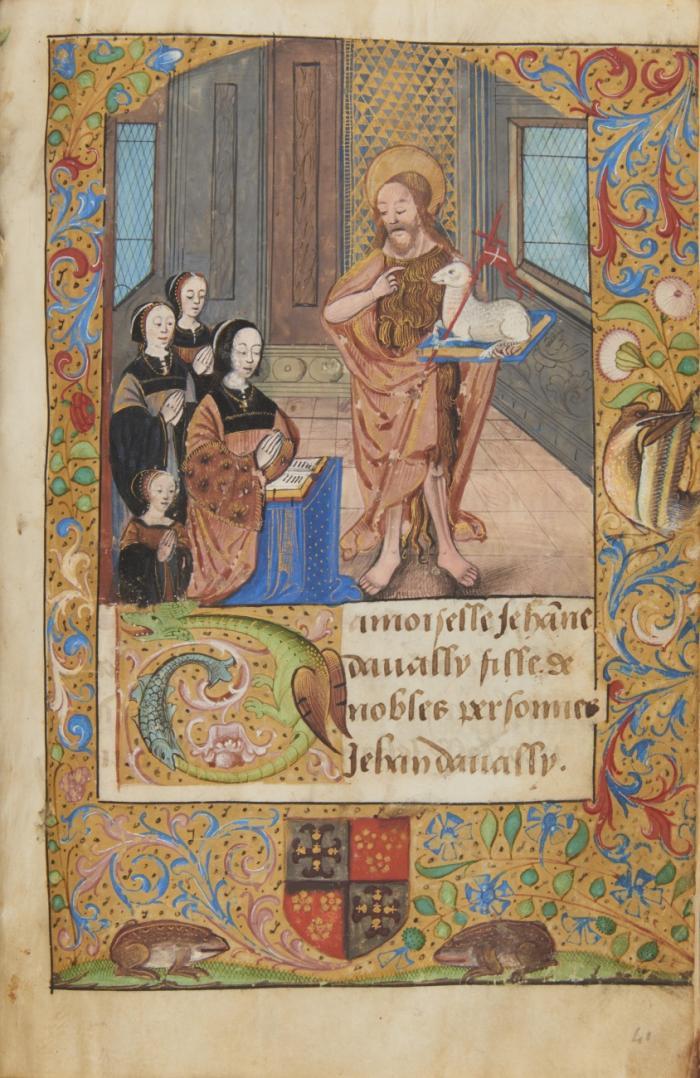 Damoiselle Jehāne
davassy fille de
nobles personnes
Jehan davassy.